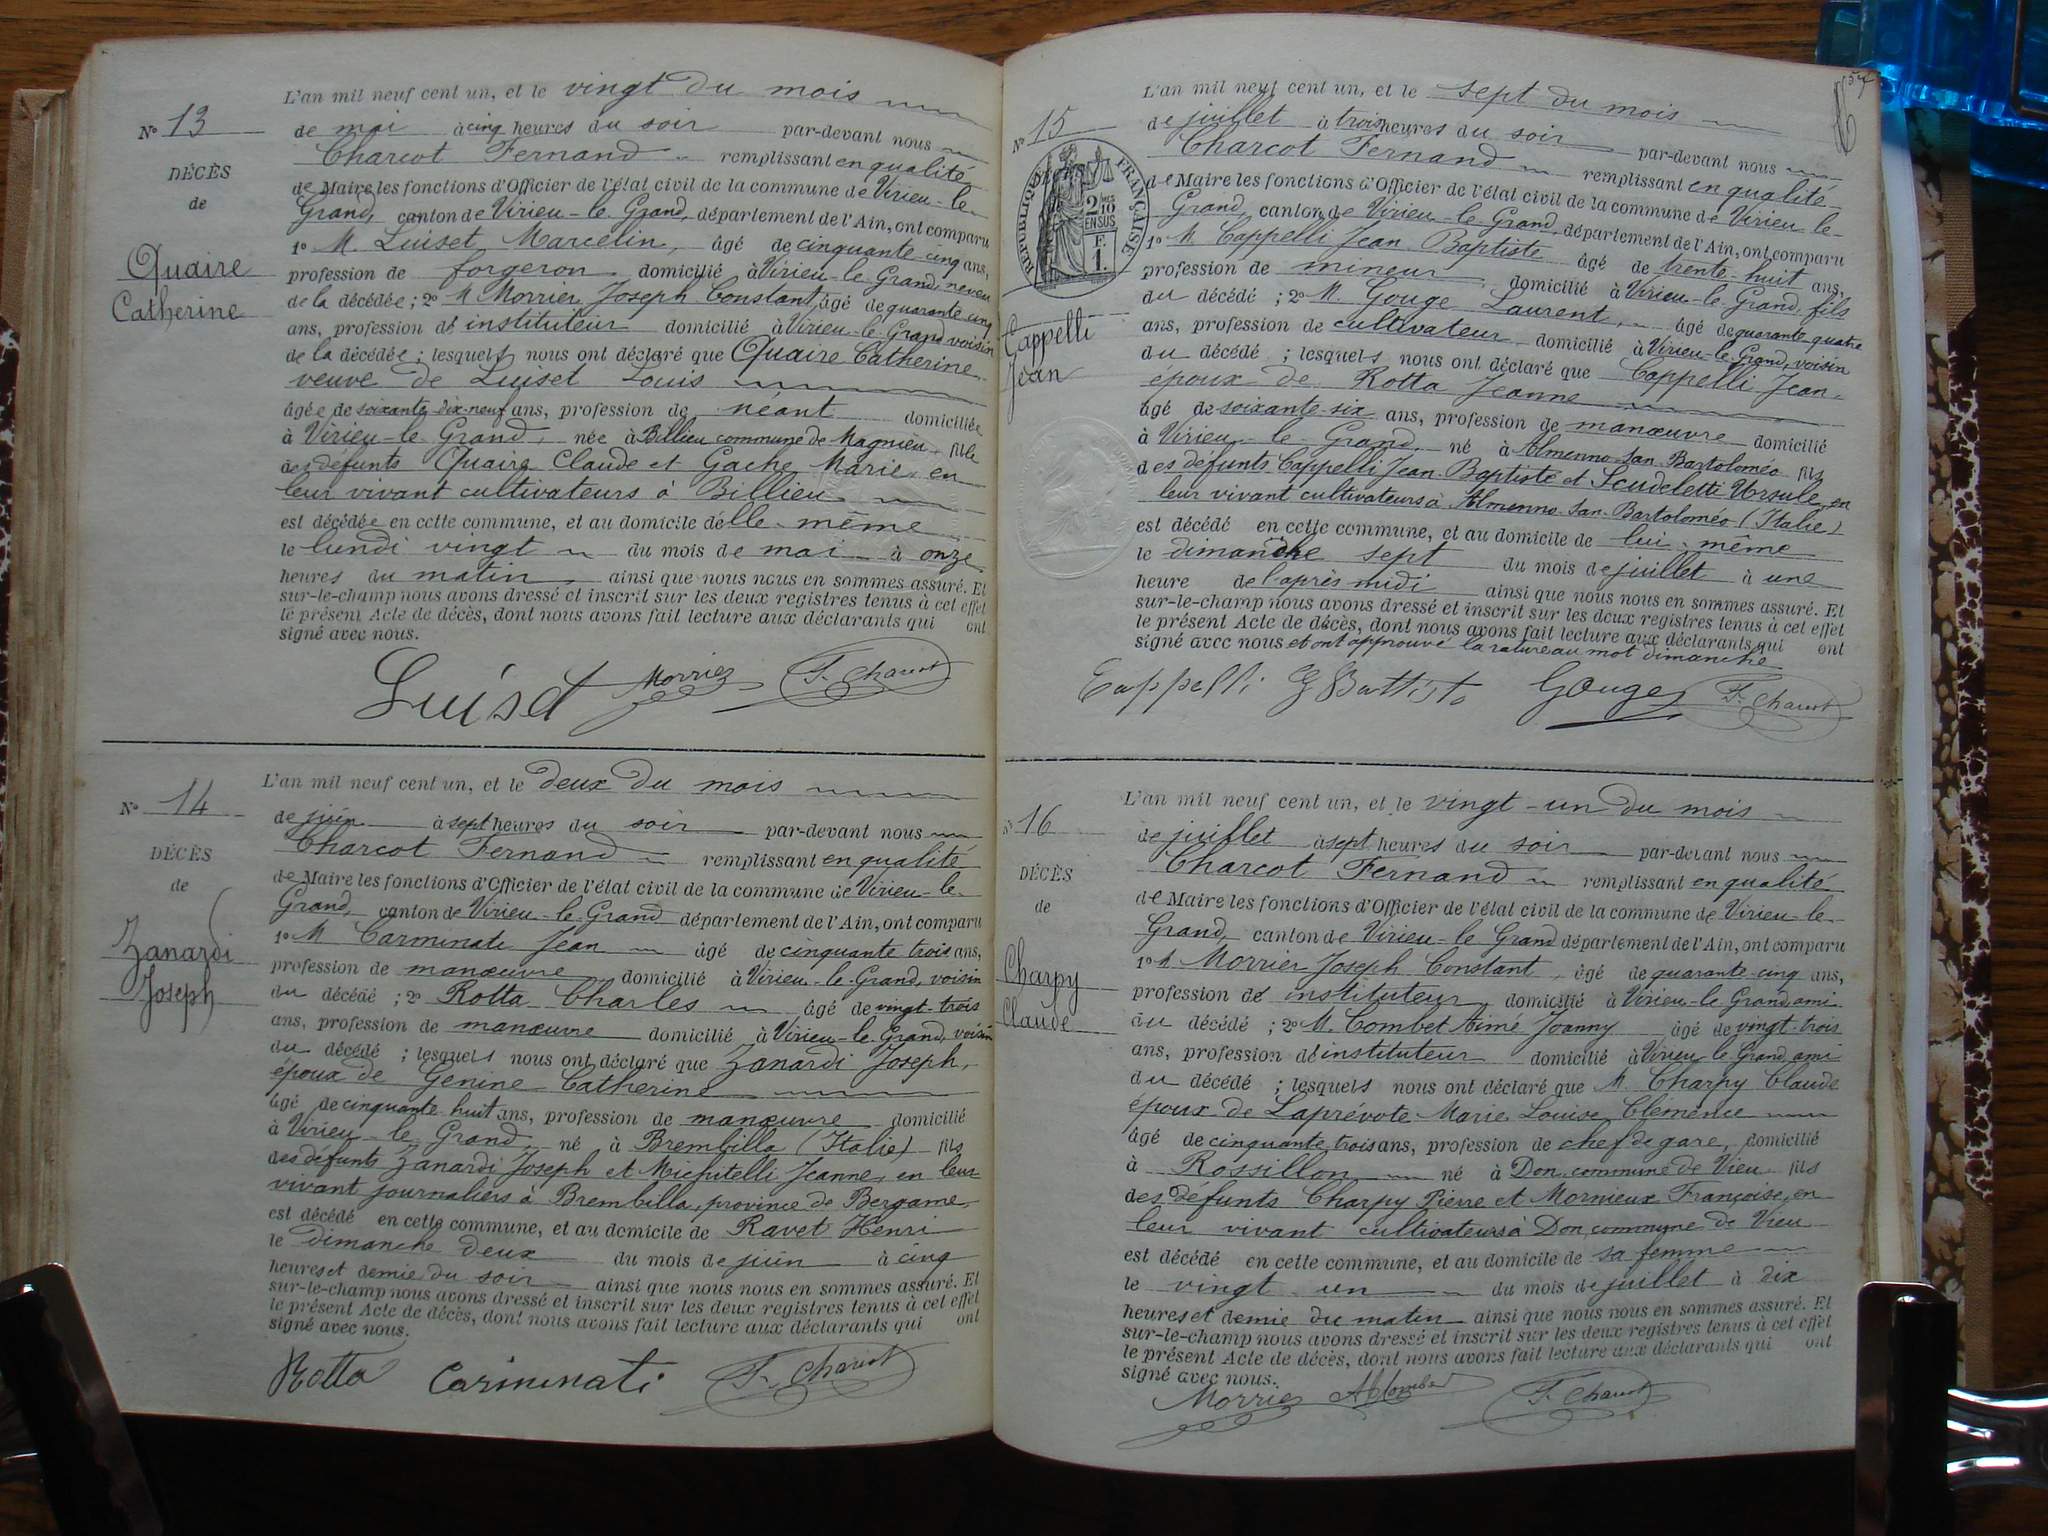 L'an mil neuf cent un, et le vingt du mois
N° 13
de mai à cinq heures du soir par-devant nous
Charcot Fernand remplissant en qualité
DÉCÈS
de Maire les fonctions d'Officier de l'état civil de la commune de Virieu-le-
de
Grand, canton de Virieu-le-Grand, département de l'Ain, ont comparu
1° M. Luiset Marcelin, âgé de cinquante cinq ans,
Quaire
profession de forgeron domicilié à Virieu-le-Grand, neveu
Catherine
de la décédée ; 2° M Morrier Joseph Constant, âgé de quarante cinq
ans, profession d' instituteur domicilié à Virieu-le-Grand voisin
de la décédée ; lesquels nous ont déclaré que Quaire Catherine
veuve de Luiset Louis
âgée de soixante dix-neuf ans, profession de néant domiciliée
à Virieu-le-Grand, née à Billieu commune de Magnieu, fille
des défunts Quaire Claude et Gache Marie, en
leur vivant cultivateurs à Billieu
est décédée en cette commune, et au domicile d'elle-même
le lundi vingt du mois de mai à onze
heures du matin, ainsi que nous nous en sommes assuré. Et
sur-le-champ nous avons dressé et inscrit sur les deux registres tenus à cet effet
le présent Acte de décès, dont nous avons fait lecture aux déclarants qui ont
signé avec nous.
Luiset Morrier F. Charcot
L'an mil neuf cent un, et le deux du mois
N° 14
de juin à sept heures du soir par-devant nous
Charcot Fernand remplissant en qualité
DÉCÈS
de Maire les fonctions d'Officier de l'état civil de la commune de Virieu-le-
de
Grand, canton de Virieu-le-Grand département de l'Ain, ont comparu
1° M Carminati Jean âgé de cinquante trois ans,
Zanardi
profession de manœuvre domicilié à Virieu-le-Grand, voisin
Joseph
du décédé ; 2° Rotta Charles âgé de vingt-trois
ans, profession de manœuvre domicilié à Virieu-le-Grand, voisin
du décédé ; lesquels nous ont déclaré que Zanardi Joseph,
époux de Genine Catherine
âgé de cinquante huit ans, profession de manœuvre domicilié
à Virieu-le-Grand né à Brembilla (Italie) fils
des défunts Zanardi Joseph et Jeanne, en leur
vivant journaliers à Brembilla, province de Bergame
est décédé en cette commune, et au domicile de Ravet Henri
le dimanche deux du mois de juin à cinq
heures et demie du soir ainsi que nous nous en sommes assuré. Et
sur-le-champ nous avons dressé et inscrit sur les deux registres tenus à cet effet
le présent Acte de décès, dont nous avons fait lecture aux déclarants qui ont
signé avec nous.
Rotta Carminati F. Charcot
57
L'an mil neuf cent un, et le sept du mois
N° 15
de juillet à trois heures du soir par-devant nous
Charcot Fernand remplissant en qualité
RÉPUBLIQUE FRANÇAISE
2 10 EN SUS
F. 1.
de Maire les fonctions d'Officier de l'état civil de la commune de Virieu-le-
Grand, canton de Virieu-le-Grand, département de l'Ain, ont comparu
1° M. Cappelli Jean Baptiste âgé de trente-huit ans,
profession de mineur domicilié à Virieu-le-Grand, fils
du décédé ; 2° M. Gouge Laurent, âgé de quarante quatre
Cappelli
Jean
ans, profession de cultivateur domicilié à Virieu-le-Grand, voisin
du décédé ; lesquels nous ont déclaré que Cappelli Jean,
époux de Rotta Jeanne
âgé de soixante-six ans, profession de manœuvre domicilié
à Virieu-le-Grand, né à Almenno-San-Bartoloméo fils
des défunts Cappelli Jean-Baptiste et Scudeletti Ursule, en
leur vivant cultivateurs à Almenno-San-Bartoloméo (Italie)
est décédé en cette commune, et au domicile de lui-même
le dimanche sept du mois de juillet à une
heure de l'après midi ainsi que nous nous en sommes assuré. Et
sur-le-champ nous avons dressé et inscrit sur les deux registres tenus à cet effet
le présent Acte de décès, dont nous avons fait lecture aux déclarants qui ont
signé avec nous et ont approuvé la rature au mot dimanche
Cappelli G Battista Gouge F. Charcot
L'an mil neuf cent un, et le vingt-un du mois
N° 16
de juillet à sept heures du soir par-devant nous
Charcot Fernand remplissant en qualité
DÉCÈS
de Maire les fonctions d'Officier de l'état civil de la commune de Virieu-le-
de
Grand, canton de Virieu-le-Grand département de l'Ain, ont comparu
1° M Morrier Joseph Constant, âgé de quarante-cinq ans,
Charpy
profession d' instituteur domicilié à Virieu-le-Grand, ami
Claude
du décédé ; 2° M. Combet Aimé Joanny âgé de vingt-trois
ans, profession d' instituteur domicilié à Virieu le Grand, ami
du décédé ; lesquels nous ont déclaré que M. Charpy Claude
époux de Laprévote Marie Louise Clémence
âgé de cinquante trois ans, profession de chef de gare, domicilié
à Rossillon né à Don, commune de Vieu fils
des défunts Charpy Pierre et Mornieux Françoise, en
leur vivant cultivateurs à Don, commune de Vieu
est décédé en cette commune, et au domicile de sa femme
le vingt un du mois de juillet à dix
heures et demie du matin ainsi que nous nous en sommes assuré. Et
sur-le-champ nous avons dressé et inscrit sur les deux registres tenus à cet effet
le présent Acte de décès, dont nous avons fait lecture aux déclarants qui ont
signé avec nous.
Morrier A Combet F. Charcot